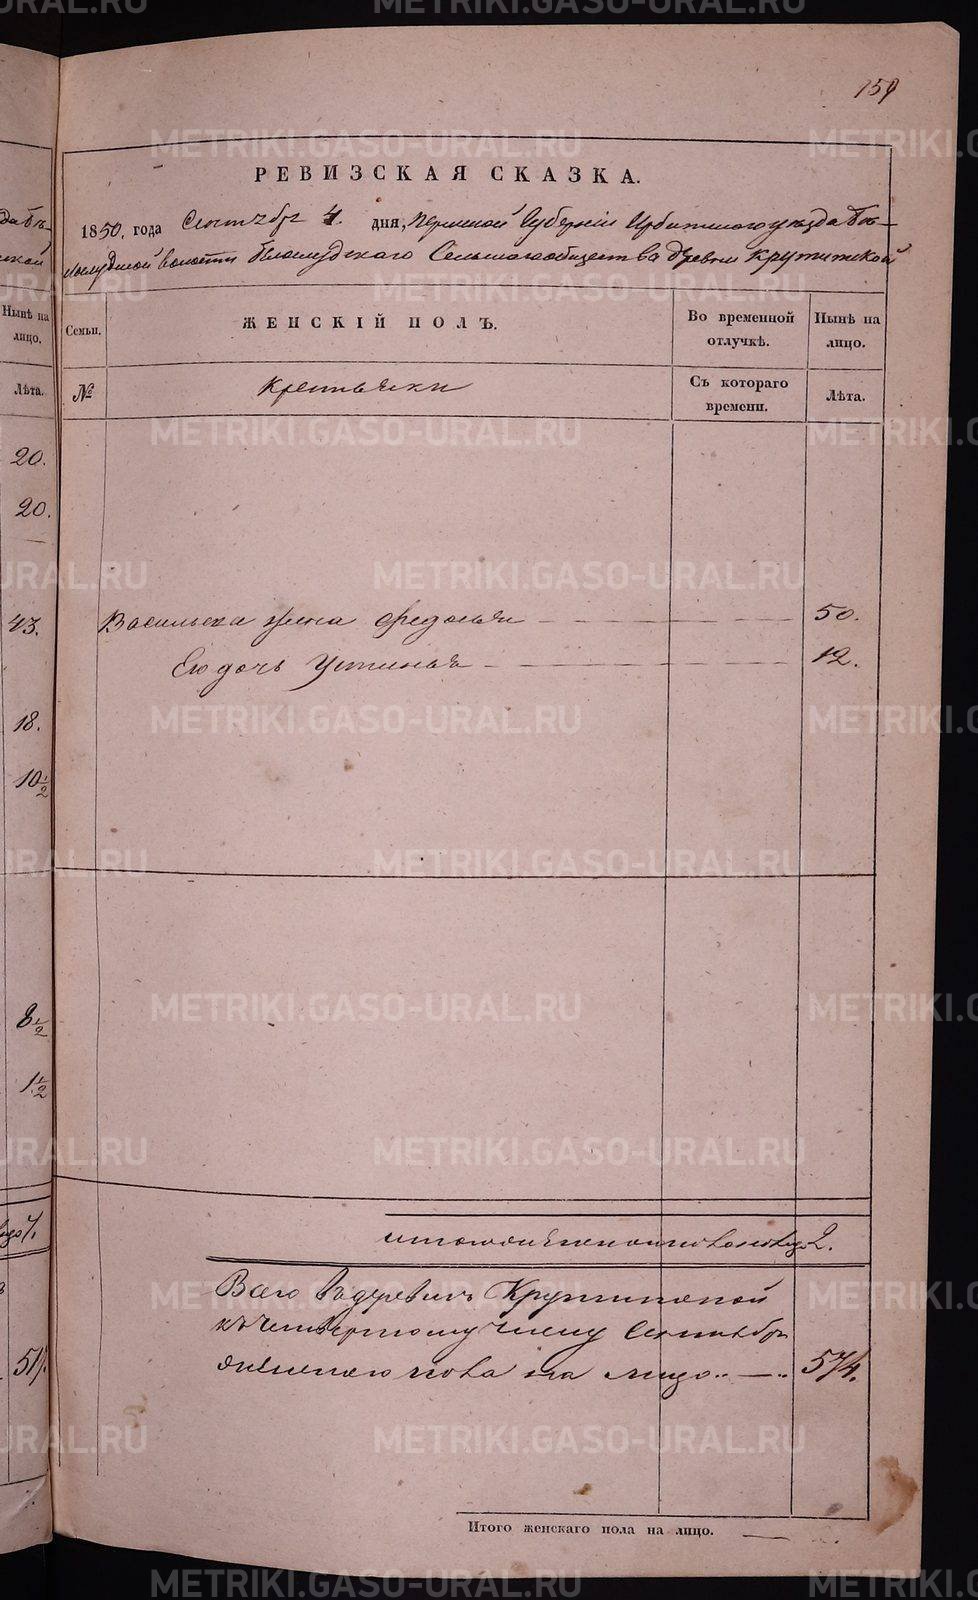 159
РЕВИЗСКАЯ СКАЗКА.
1850. года Сентября 4. дня, Пермской Губернiи Ирбитскаго уѣзда Бѣ-
лослудской волости Бѣлослудскаго Сельскаго общества деревни Крутихинской
Семьи.
ЖЕНСКIЙ ПОЛЪ.
Во временной отлучкѣ.
Нынѣ на лицо.
№
Крестьянки
Съ котораго времени.
Лѣта.
Васильева жена Федосья 50.
Его дочь Устинья 12.
итого женскаго пола на лицо 2.
Всего въ деревнѣ
къ четвертому числу Сентября
женскаго пола на лицо 574.
Итого женскаго пола на лицо.
Нынѣ на лицо.
Лѣта.
20.
20.
43.
18.
10½
8½
1½
METRIKI.GASO-URAL.RU